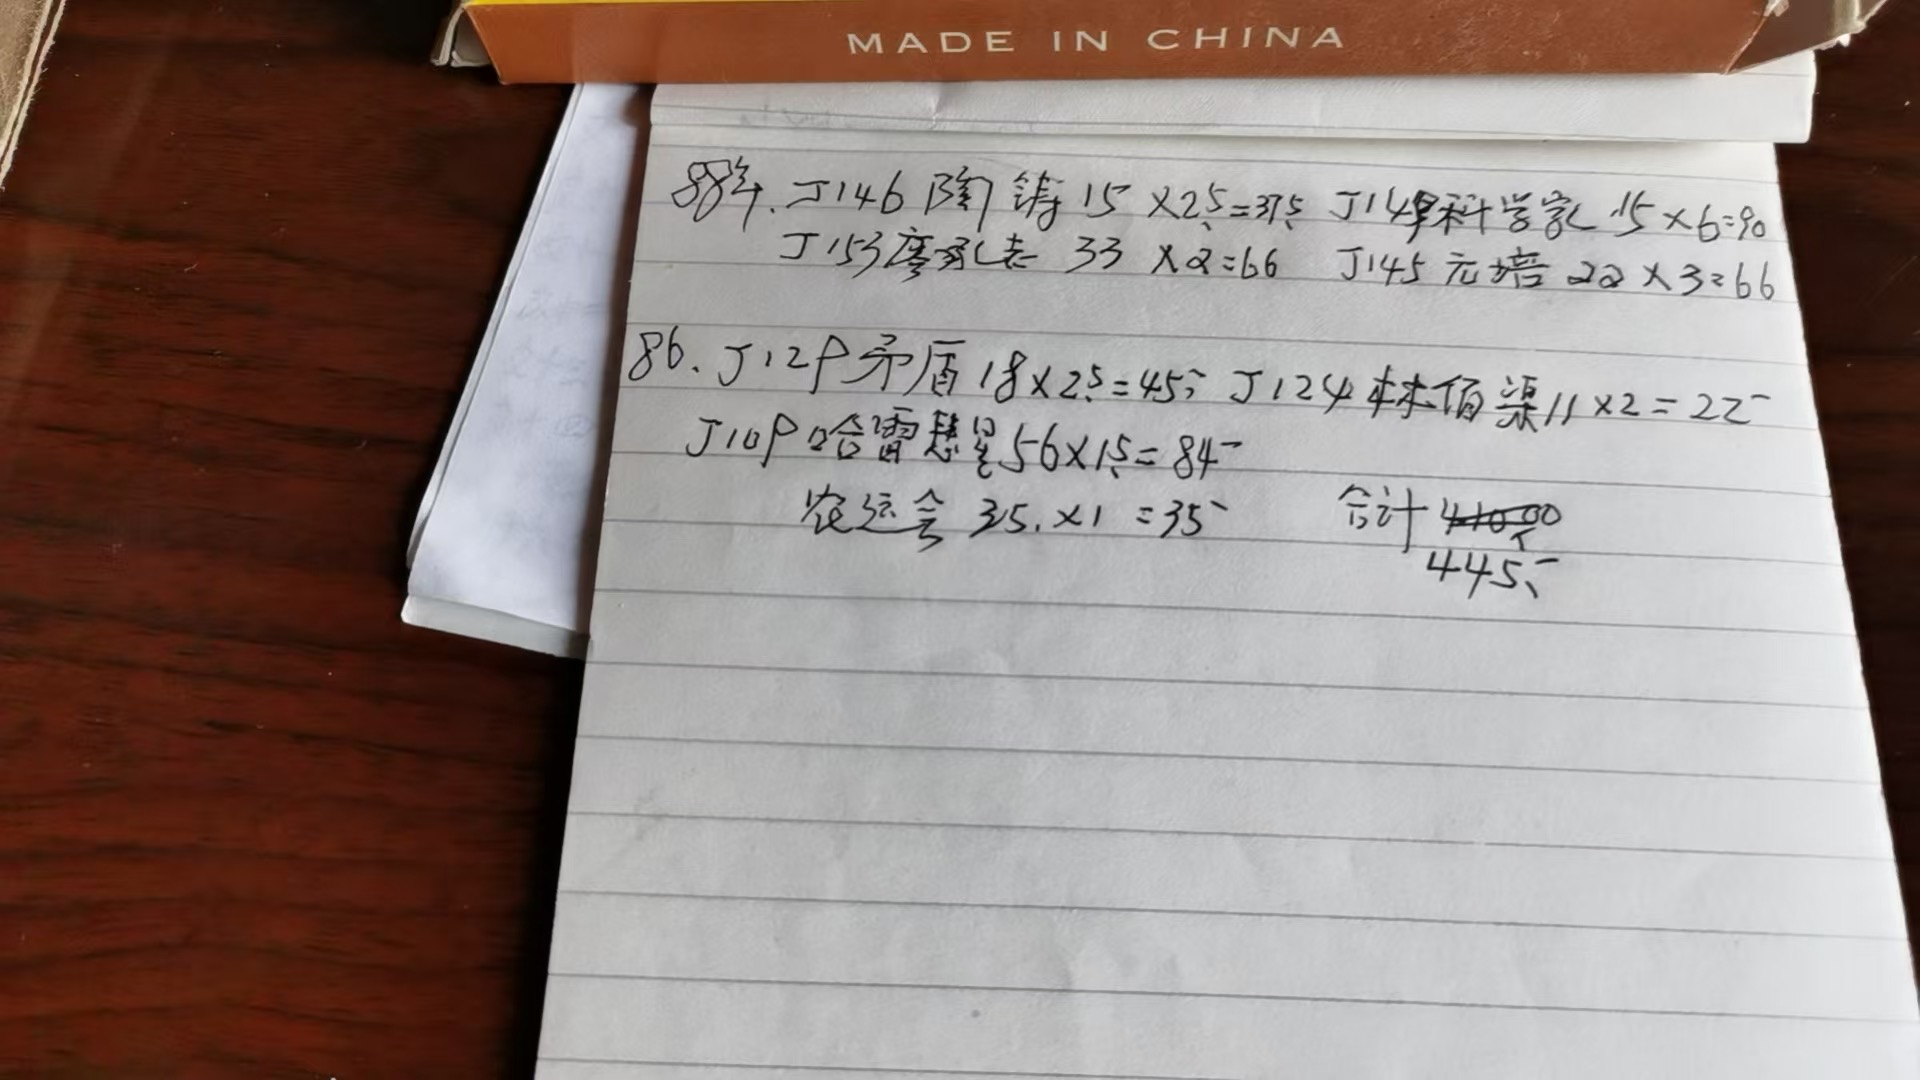 MADE IN CHINA
88年. J146 陶铸 15 ×2.5=37.5 J149科学家 15×6=90
J153廖承志 33 ×2=66 J145 元培 22×3=66
86. J129矛盾18×2.5=45 J124林伯渠11×2=22
J109哈雷慧星56×1.5=84
农运会 35.×1 =35 合计
445.